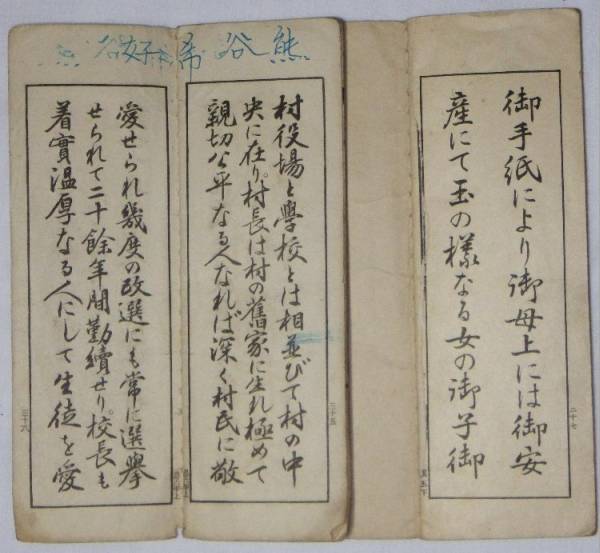 御手紙により御母上には御安
産にて玉の樣なる女の御子御
二十七
熊谷 希 好
村役場と學校とは相並びて村の中
央に在り。村長は村の舊家に生れ極めて
親切公平なる人なれば深く村民に敬
三十五
愛せられ幾度の改選にも常に選擧
せられて二十餘年間勤續せり。校長も
着實温厚なる人にして生徒を愛
三十六